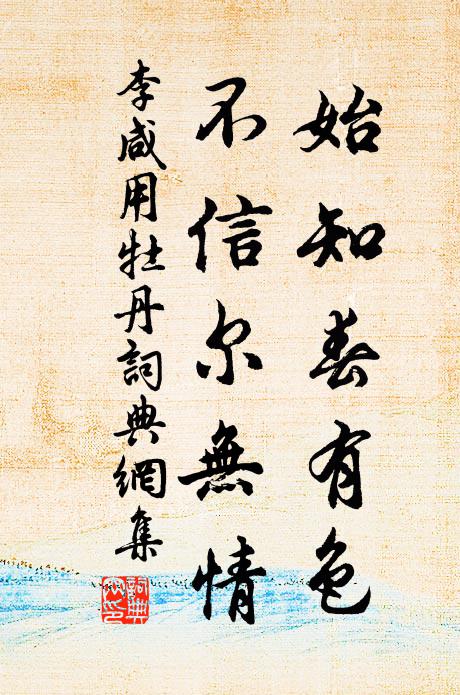 始知春有色
不信尔無情
李咸用牡丹詞典網集